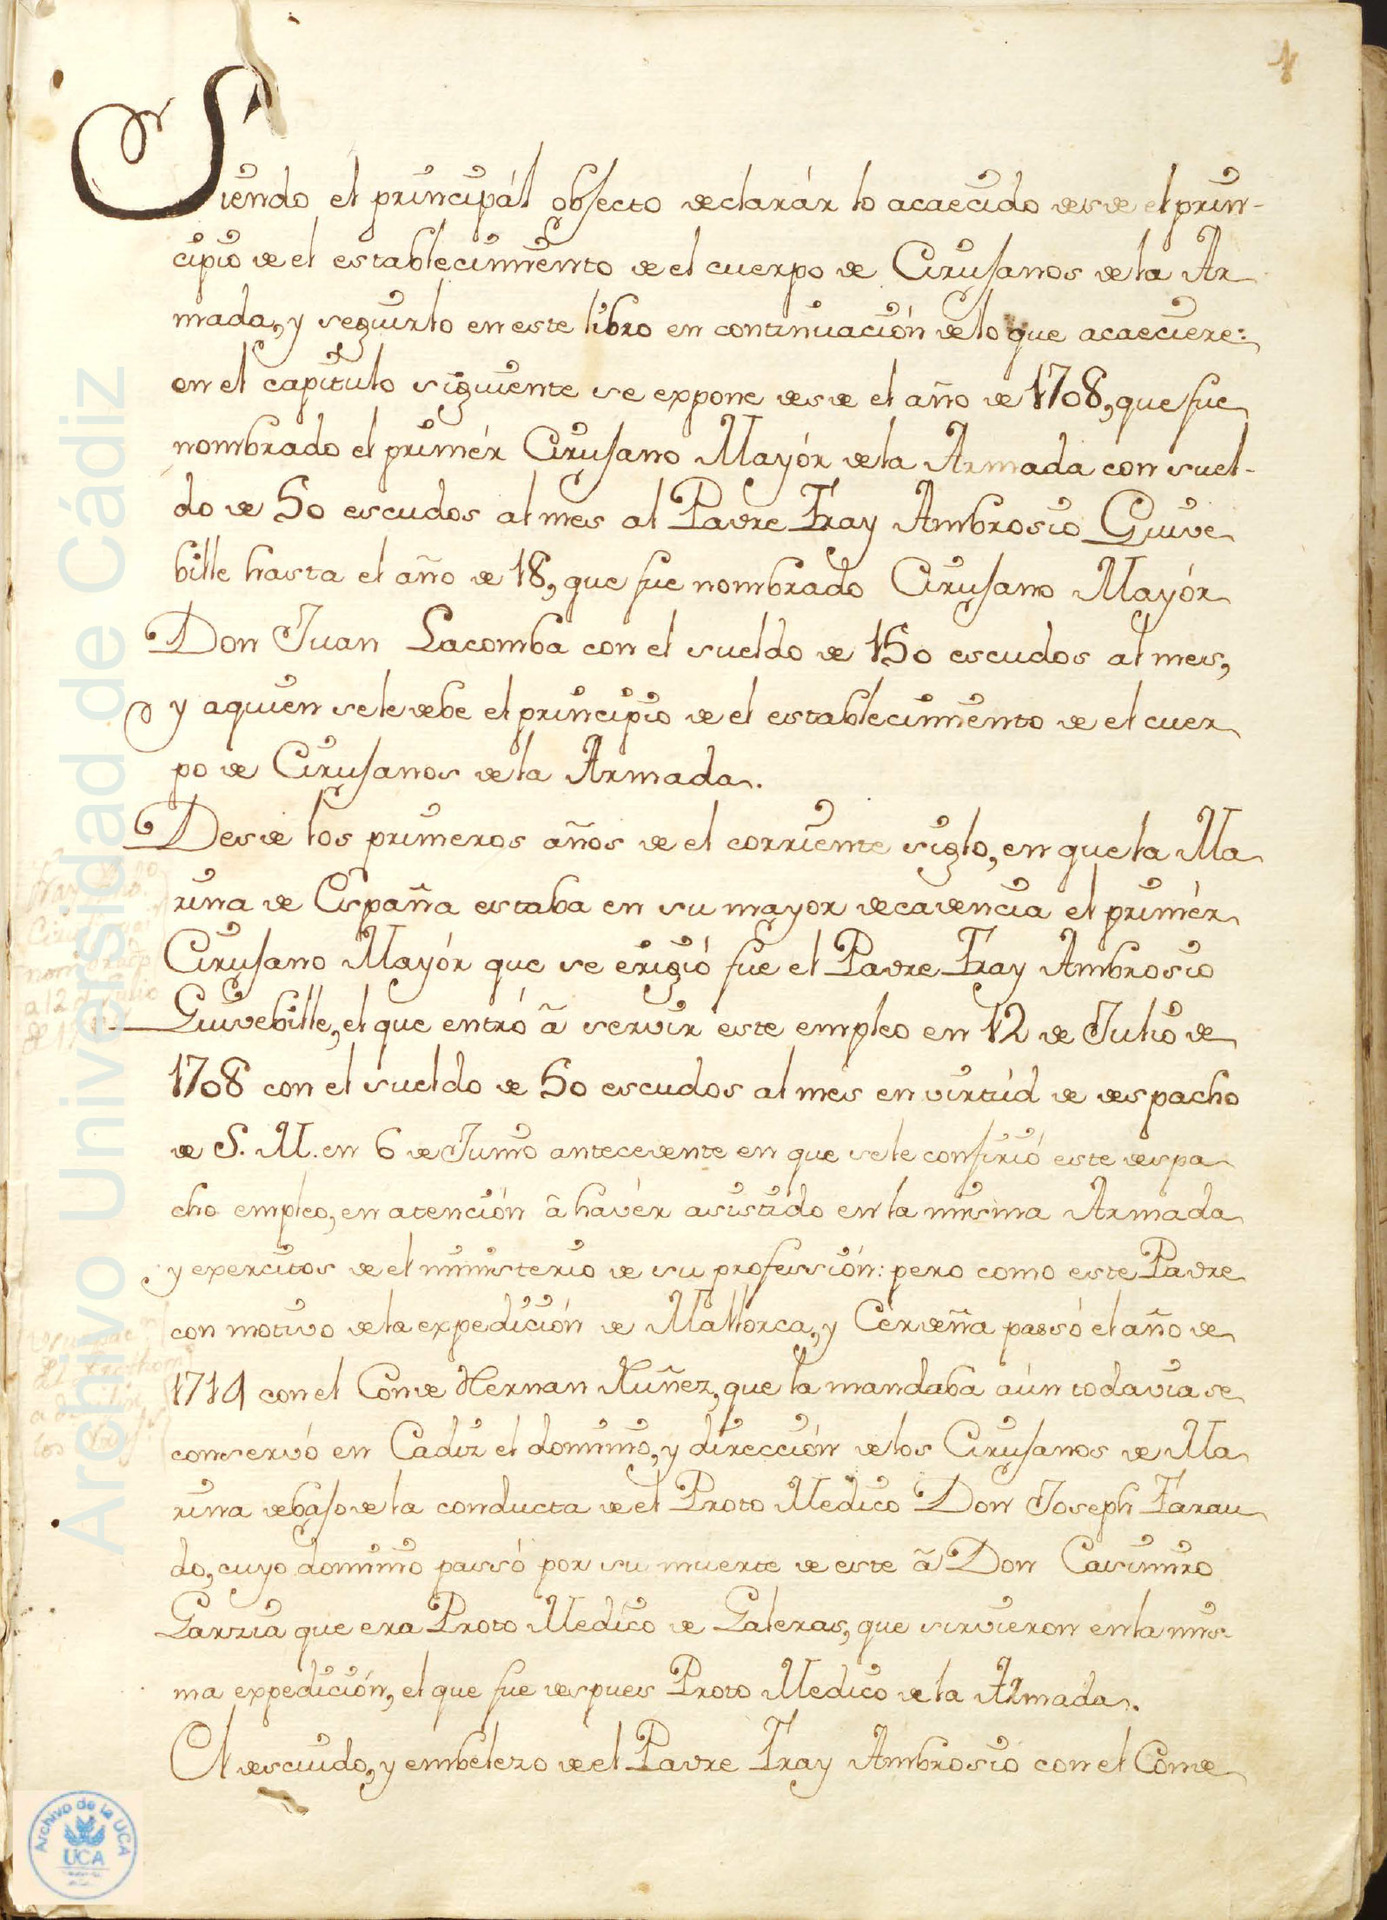 1
Siendo el principál obJecto declarár lo acaecido desde el prin-
cipio de el establecimiento de el cuerpo de CiruJanos de la Ar
mada, y seguirlo en este libro en continuación de lo que acaeciere:
en el capitulo siguiente se expone desde el año de 1708, que fue
nombrado el primér CiruJano Mayór de la Armada con suel-
do de 50 escudos al mes al Padre Fray Ambrosio Guive
bille hasta el año de 18, que fue nombrado CiruJano Mayór
Don Juan Lacomba con el sueldo de 150 escudos al mes,
y aquien sele debe el principio de el establecimiento de el cuer
po de CiruJanos de la Armada.
Desde los primeros años de el corriente siglo, en que la Ma
rina de España estaba en su mayor decadencia el primér
CiruJano Mayór que se erigió fue el Padre Fray Ambrosio
Guivebille, el que entró â servir este empleo en 12 de Julio de
1708 con el sueldo de 50 escudos al mes en virtúd de despacho
de S. M. en 6 de Junio antecedente en que sele confirió este despa
cho empleo, en atención â havér asistido en la misma Armada
y exercitos de el ministerio de su professión: pero como este Padre
con motivo de la expedición de Mallorca, y Cerdeña passó el año de
1714 con el Conde Hernan Nuñez, que la mandaba aún todavia se
conservó en Cadiz el dominio, y dirección de los CiruJanos de Ma
rina debaJo de la conducta de el Proto Medico Don Joseph Farau
do, cuyo dominio passó por su muerte de este â Don Casimiro
Garzia que era Proto Medico de Galeras, que sirvieron en la mis-
ma expedición, el que fue despues Proto Medico de la Armada.
El descuido, y embelezo de el Padre Fray Ambrosio con el Conde
nombrado
a 12 de Julio
Archivo Universidad de Cádiz
Archivo de la UCA
UCA